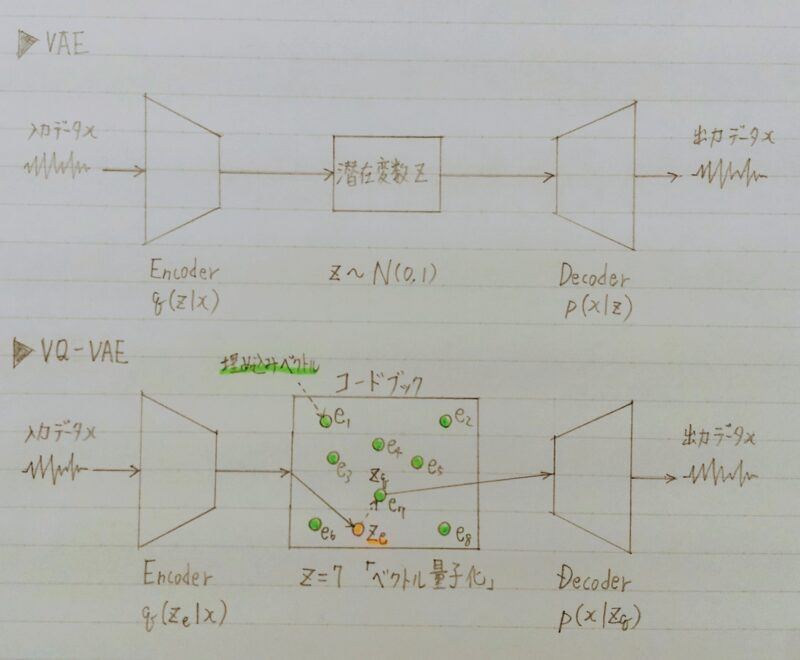 ▶ VAE
入力データx
潜在変数 Z
出力データx
Encoder
q(z|x)
z~N(0,1)
Decoder
p(x|z)
▶ VQ-VAE
埋め込みベクトル
コードブック
入力データx
e1
e2
e3
e4
e5
Zq
e7
e6
Ze
e8
出力データx
Encoder
q(Ze|x)
Z=7 「ベクトル量子化」
Decoder
p(x|Zq)